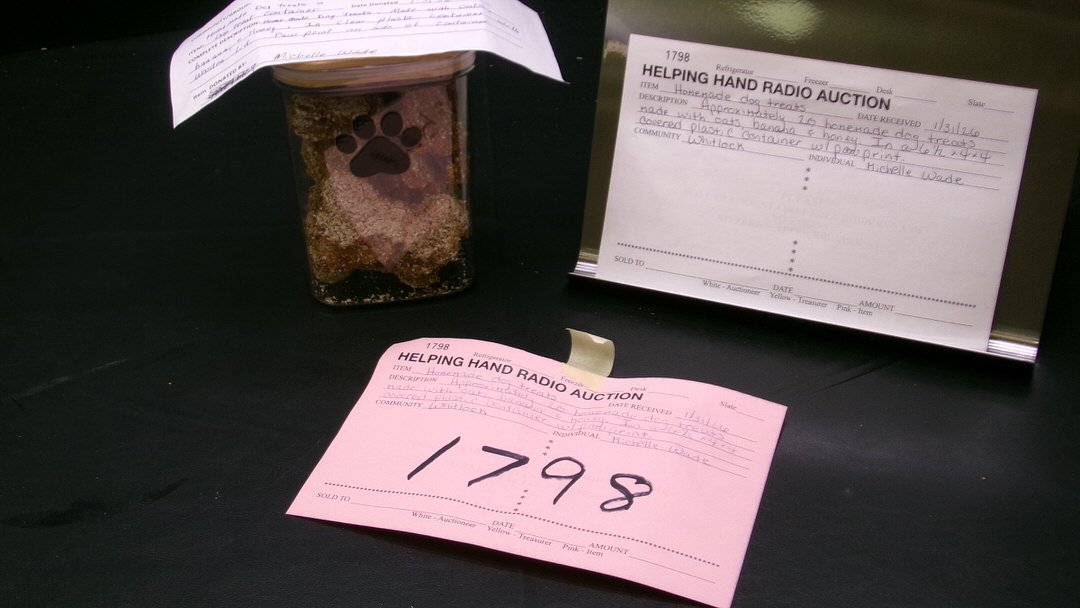 Dog treats in
Date Donated
COMPLETE DESCRIPTION: Home Made Dog Treats. Made with Oats
banana & honey. In Clear Plastic Container
wooden lid. Paw print on side of container
Item DONATED BY: Michelle Wade
1798
Refrigerator Freezer Desk Slate
HELPING HAND RADIO AUCTION
ITEM Homemade dog treats DATE RECEIVED 1/31/26
DESCRIPTION Approximately 20 homemade dog treats
made with oats, banana & honey. In a 6½ x 4 x 4
covered plastic container w/ paw print.
COMMUNITY Whitlock INDIVIDUAL Michelle Wade
SOLD TO DATE AMOUNT
White - Auctioneer Yellow - Treasurer Pink - Item
1798
Refrigerator Freezer Desk Slate
HELPING HAND RADIO AUCTION
ITEM Homemade dog treats DATE RECEIVED 1/31/26
DESCRIPTION Approximately 20 homemade dog treats
made with oats, banana & honey. In a 6½ x 4 x 4
covered plastic container w/ paw print.
COMMUNITY Whitlock INDIVIDUAL Michelle Wade
1798
SOLD TO DATE AMOUNT
White - Auctioneer Yellow - Treasurer Pink - Item